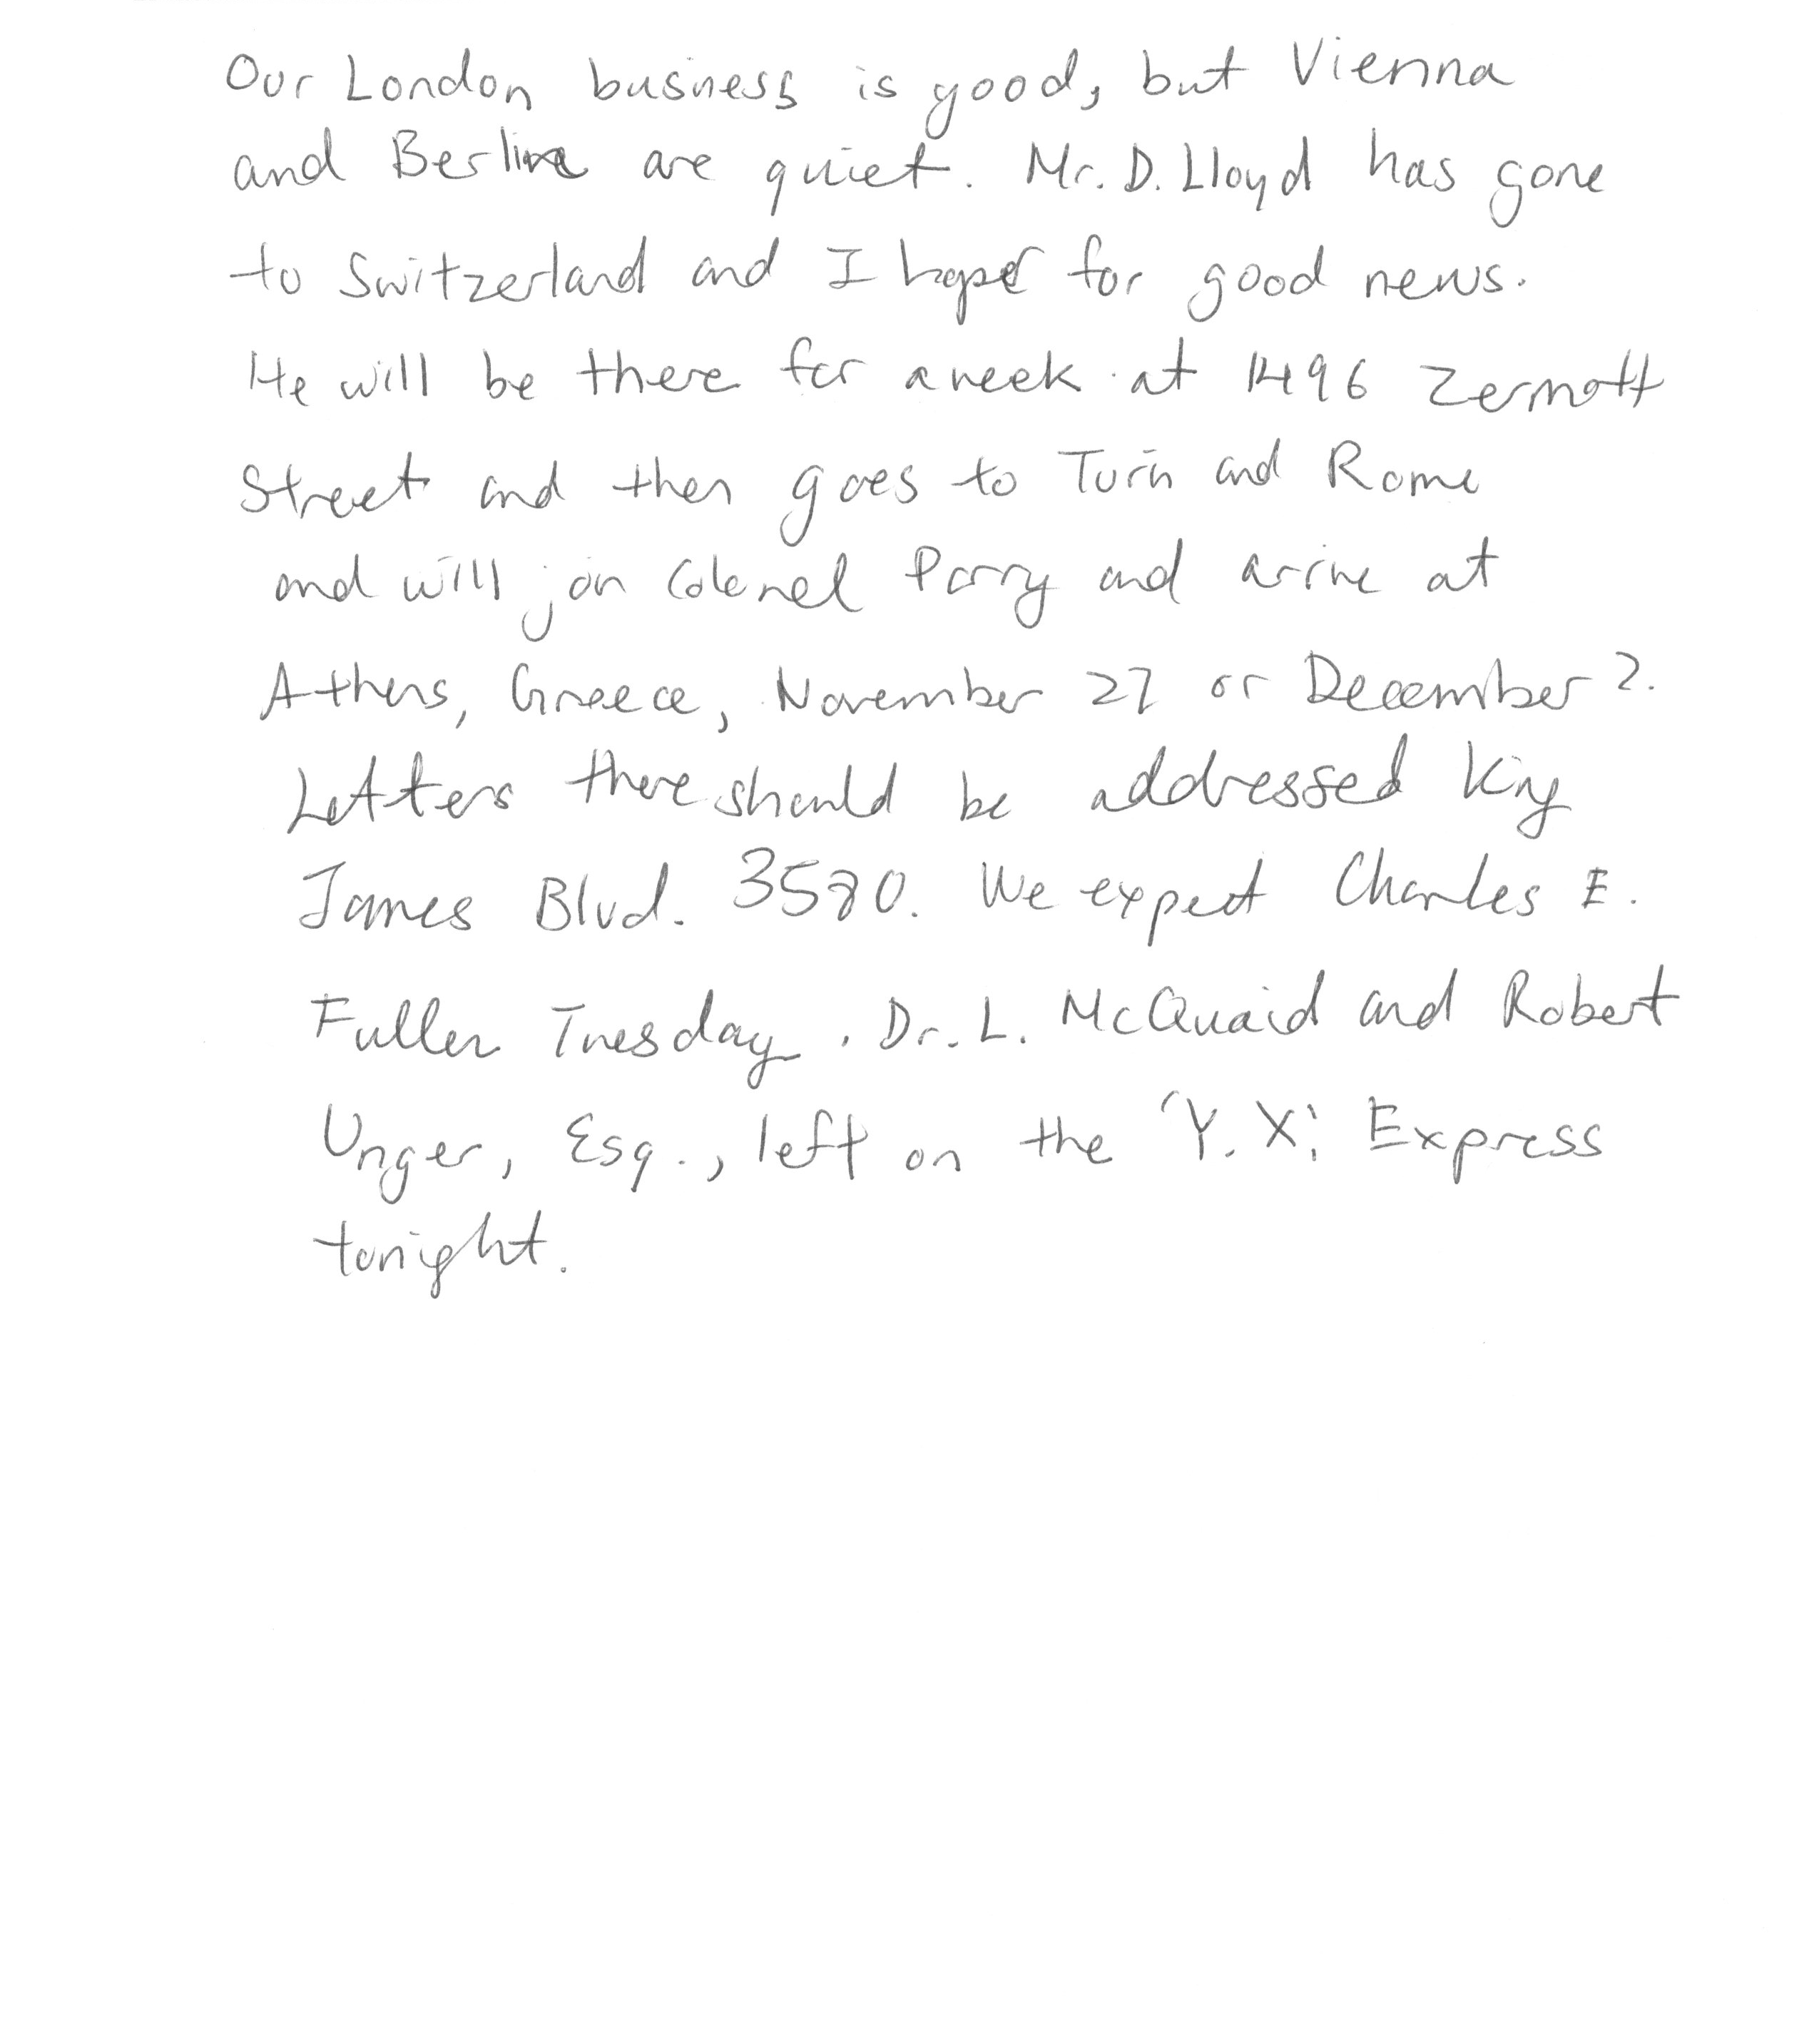 Our London business is good, but Vienna
and Berlin are quiet. Mr. D. Lloyd has gone
to Switzerland and I hope for good news.
He will be there for a week at 1496 Zermott
Street and then goes to Turin and Rome
and will join Colonel Parry and arrive at
Athens, Greece, November 27 or December 2.
Letters there should be addressed King
James Blvd. 3580. We expect Charles E.
Fuller Tuesday. Dr. L. McQuaid and Robert
Unger, Esq., left on the 'Y. X.' Express
tonight.